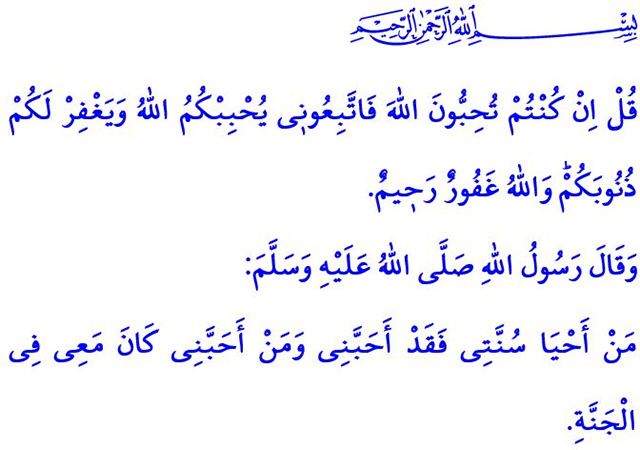 بِسْمِ اللهِ الرَّحْمٰنِ الرَّحِيمِ
قُلْ اِنْ كُنْتُمْ تُحِبُّونَ اللهَ فَاتَّبِعُونٖي يُحْبِبْكُمُ اللهُ وَيَغْفِرْ لَكُمْ
ذُنُوبَكُمْؕ وَاللهُ غَفُورٌ رَحٖيمٌ.
وَقَالَ رَسُولُ اللهِ صَلَّى اللهُ عَلَيْهِ وَسَلَّمَ:
مَنْ أَحْيَا سُنَّتِى فَقَدْ أَحَبَّنِى وَمَنْ أَحَبَّنِى كَانَ مَعِى فِى
الْجَنَّةِ.